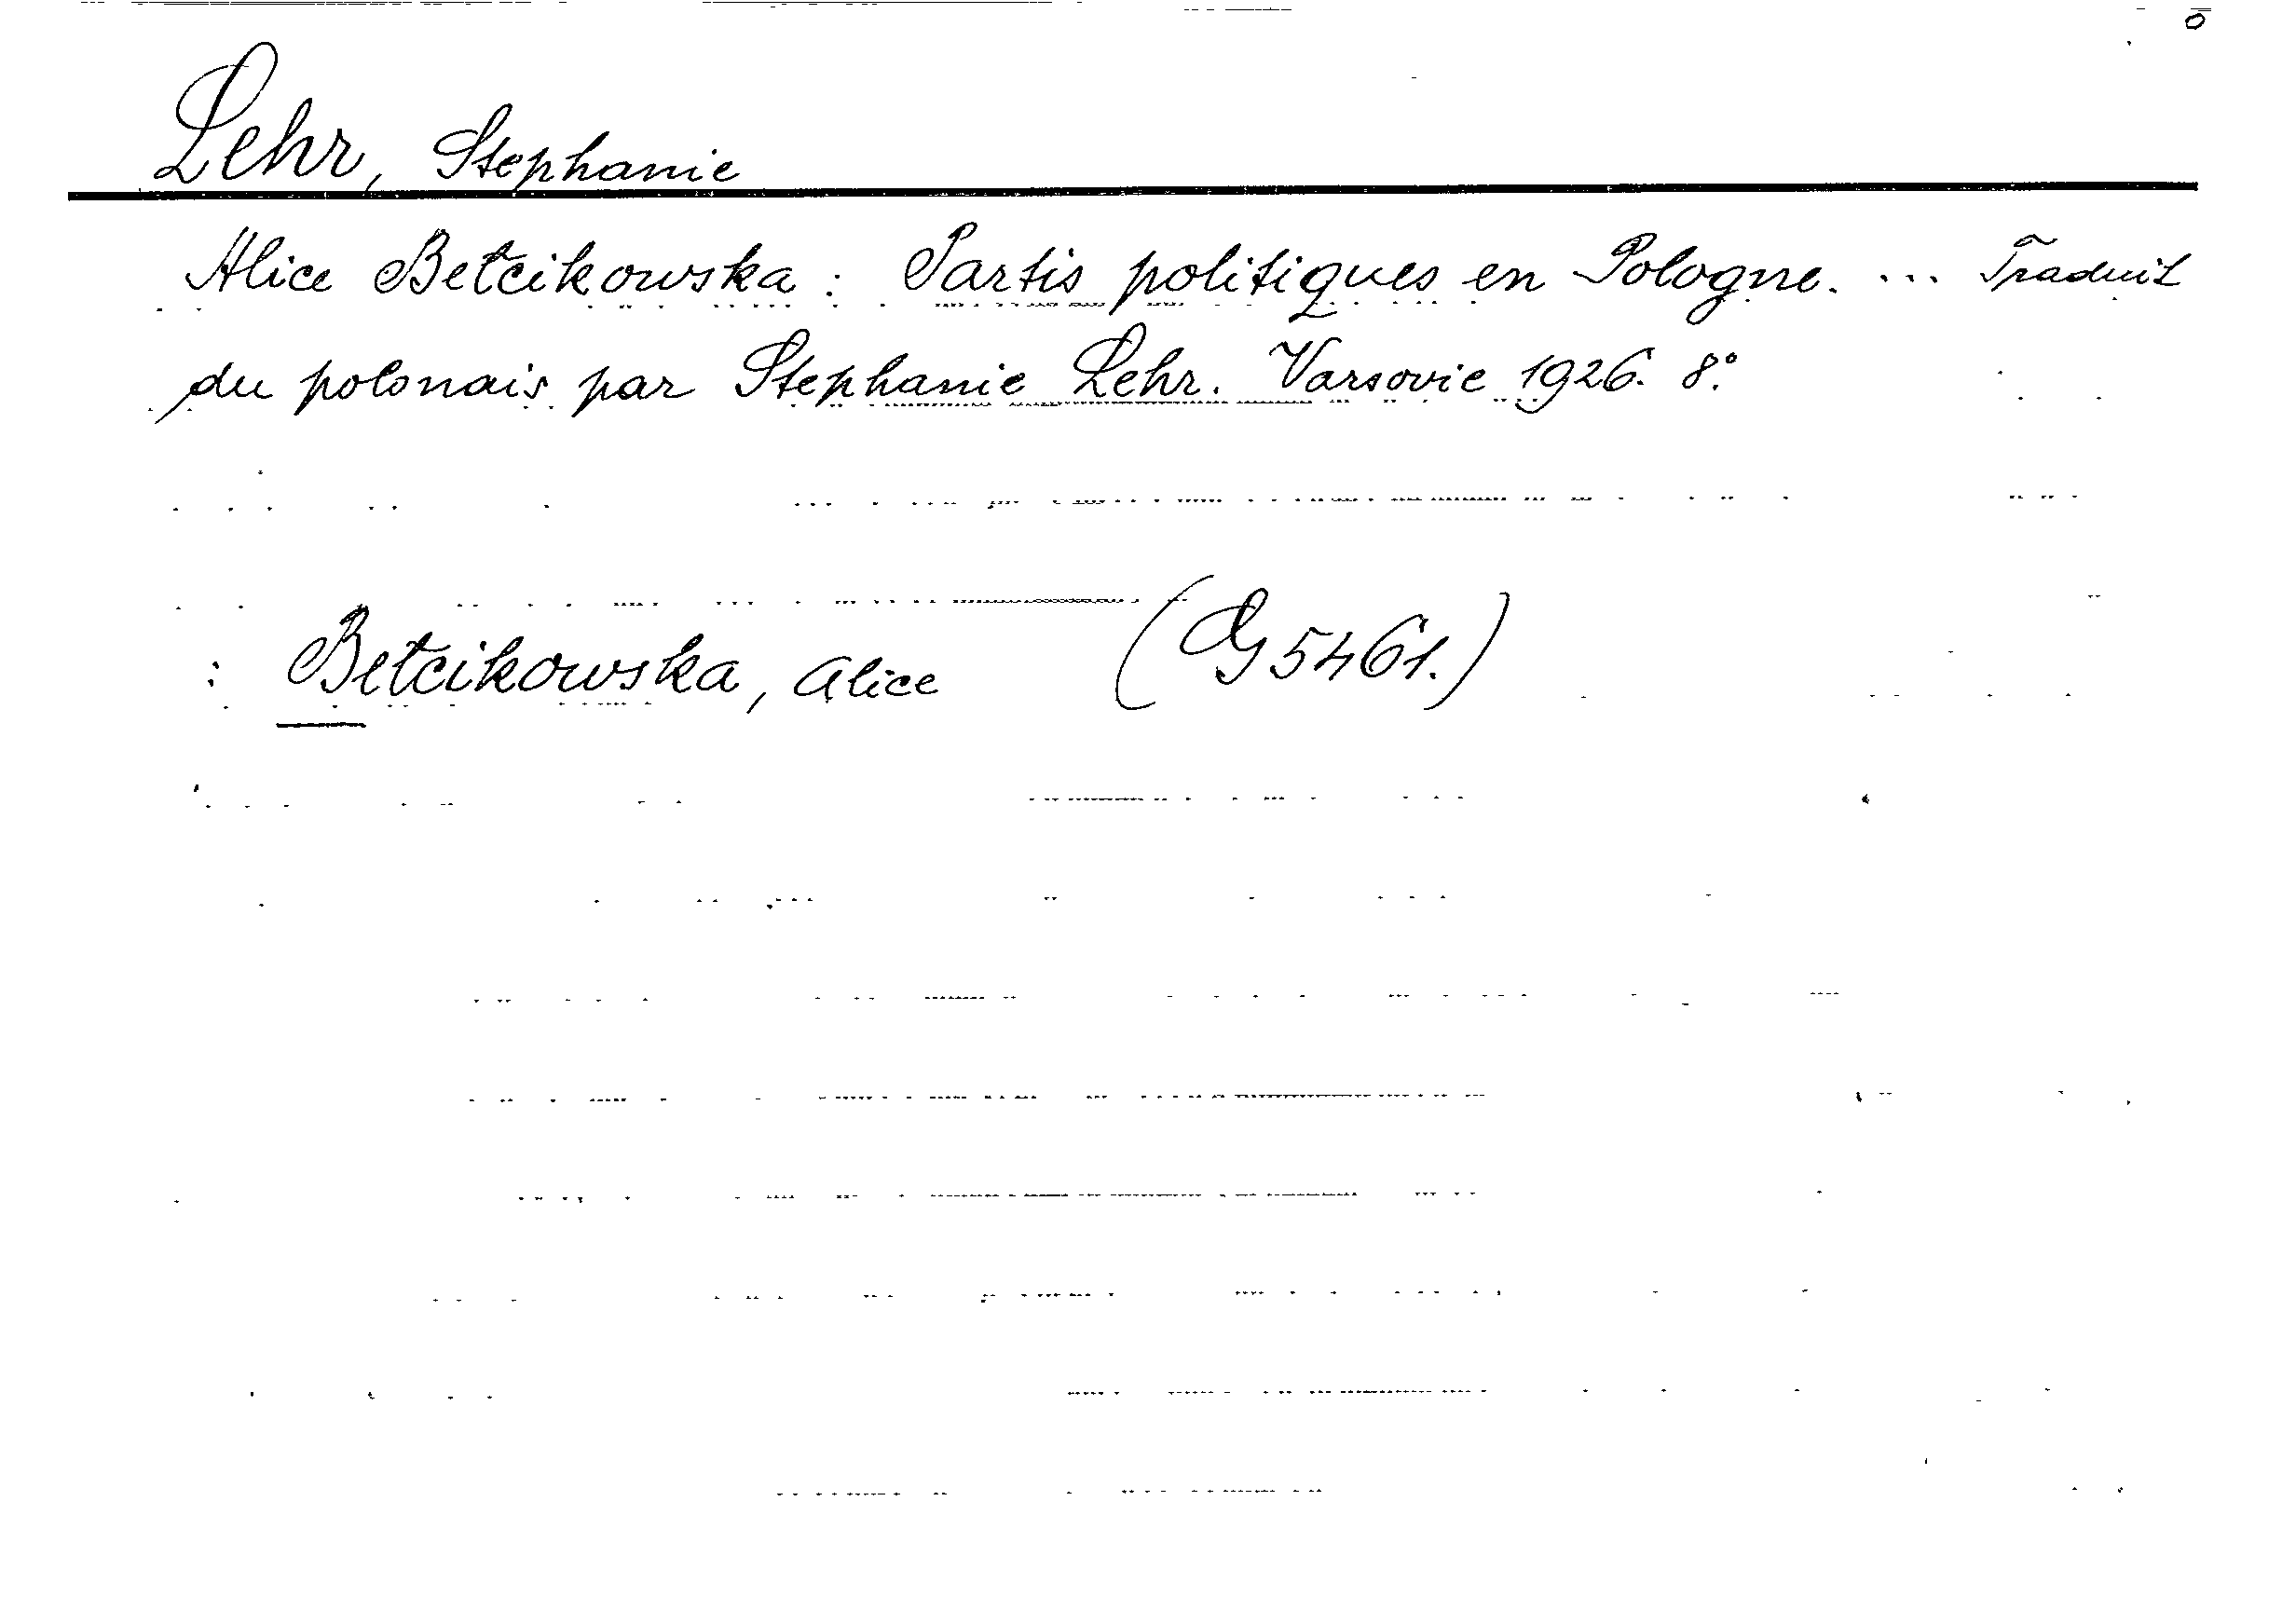 Lehr, Stephanie
Alice Betcikowska: Partis politiques en Pologne. ... Traduit
du polonais par Stephanie Lehr. Varsovie 1926. 8°.
: Betcikowska, Alice (G 5461.)